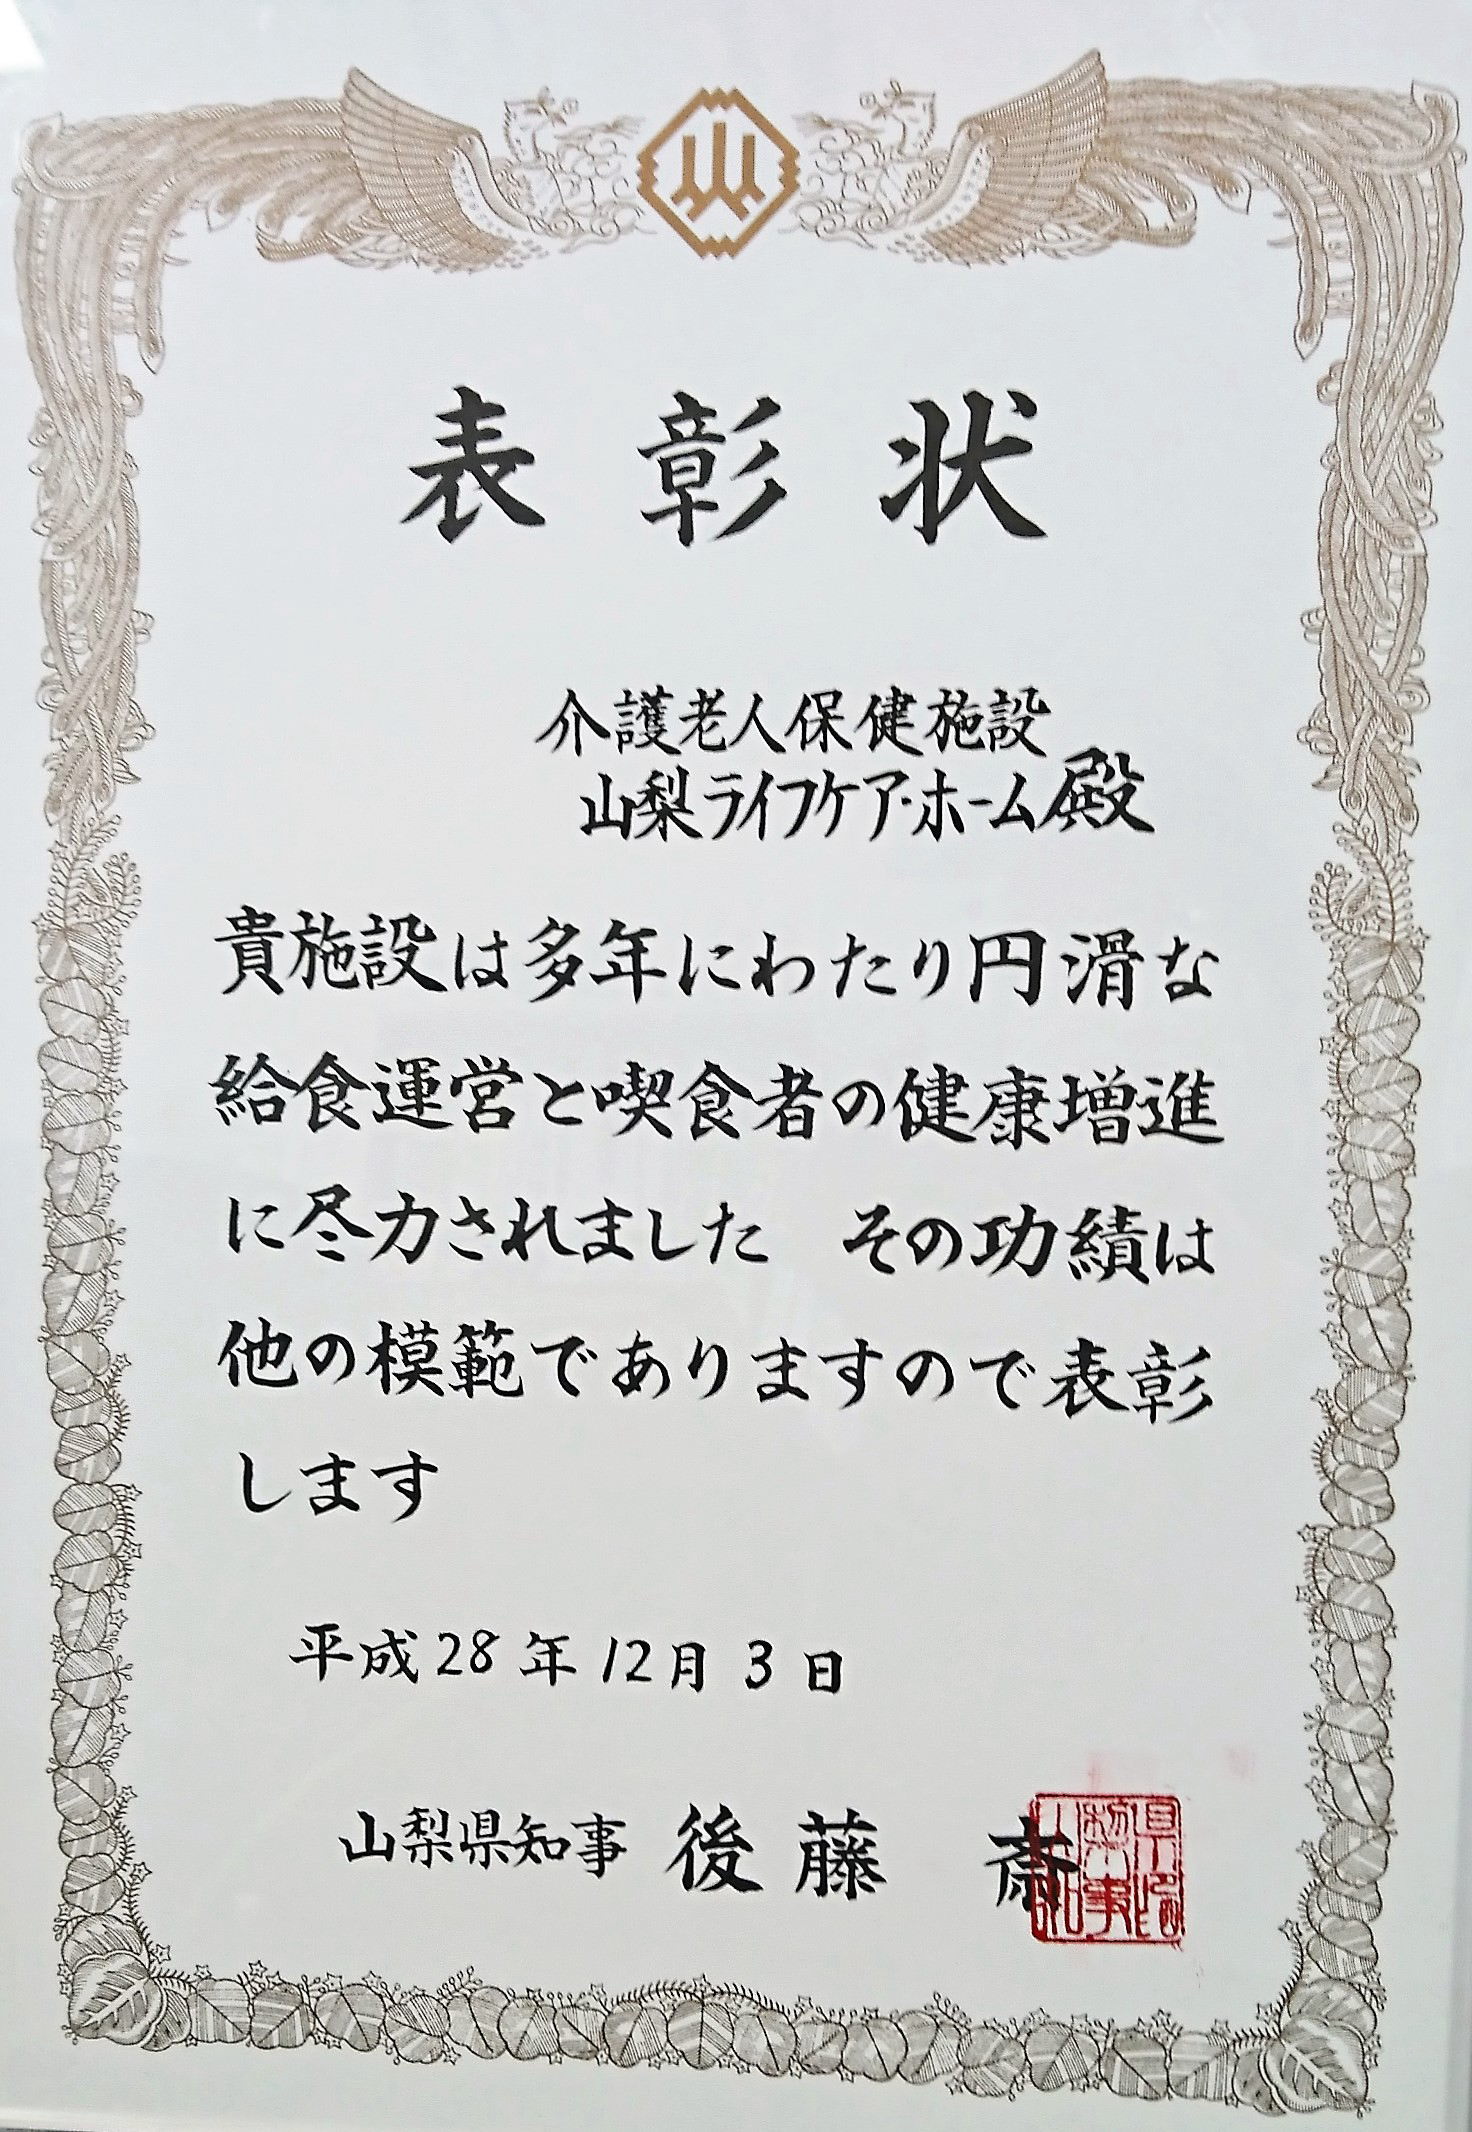 表彰状
介護老人保健施設
山梨ライフケア・ホーム殿
貴施設は多年にわたり円滑な
給食運営と喫食者の健康増進
に尽力されました　その功績は
他の模範でありますので表彰
します
平成28年12月3日
山梨県知事 後藤 斎